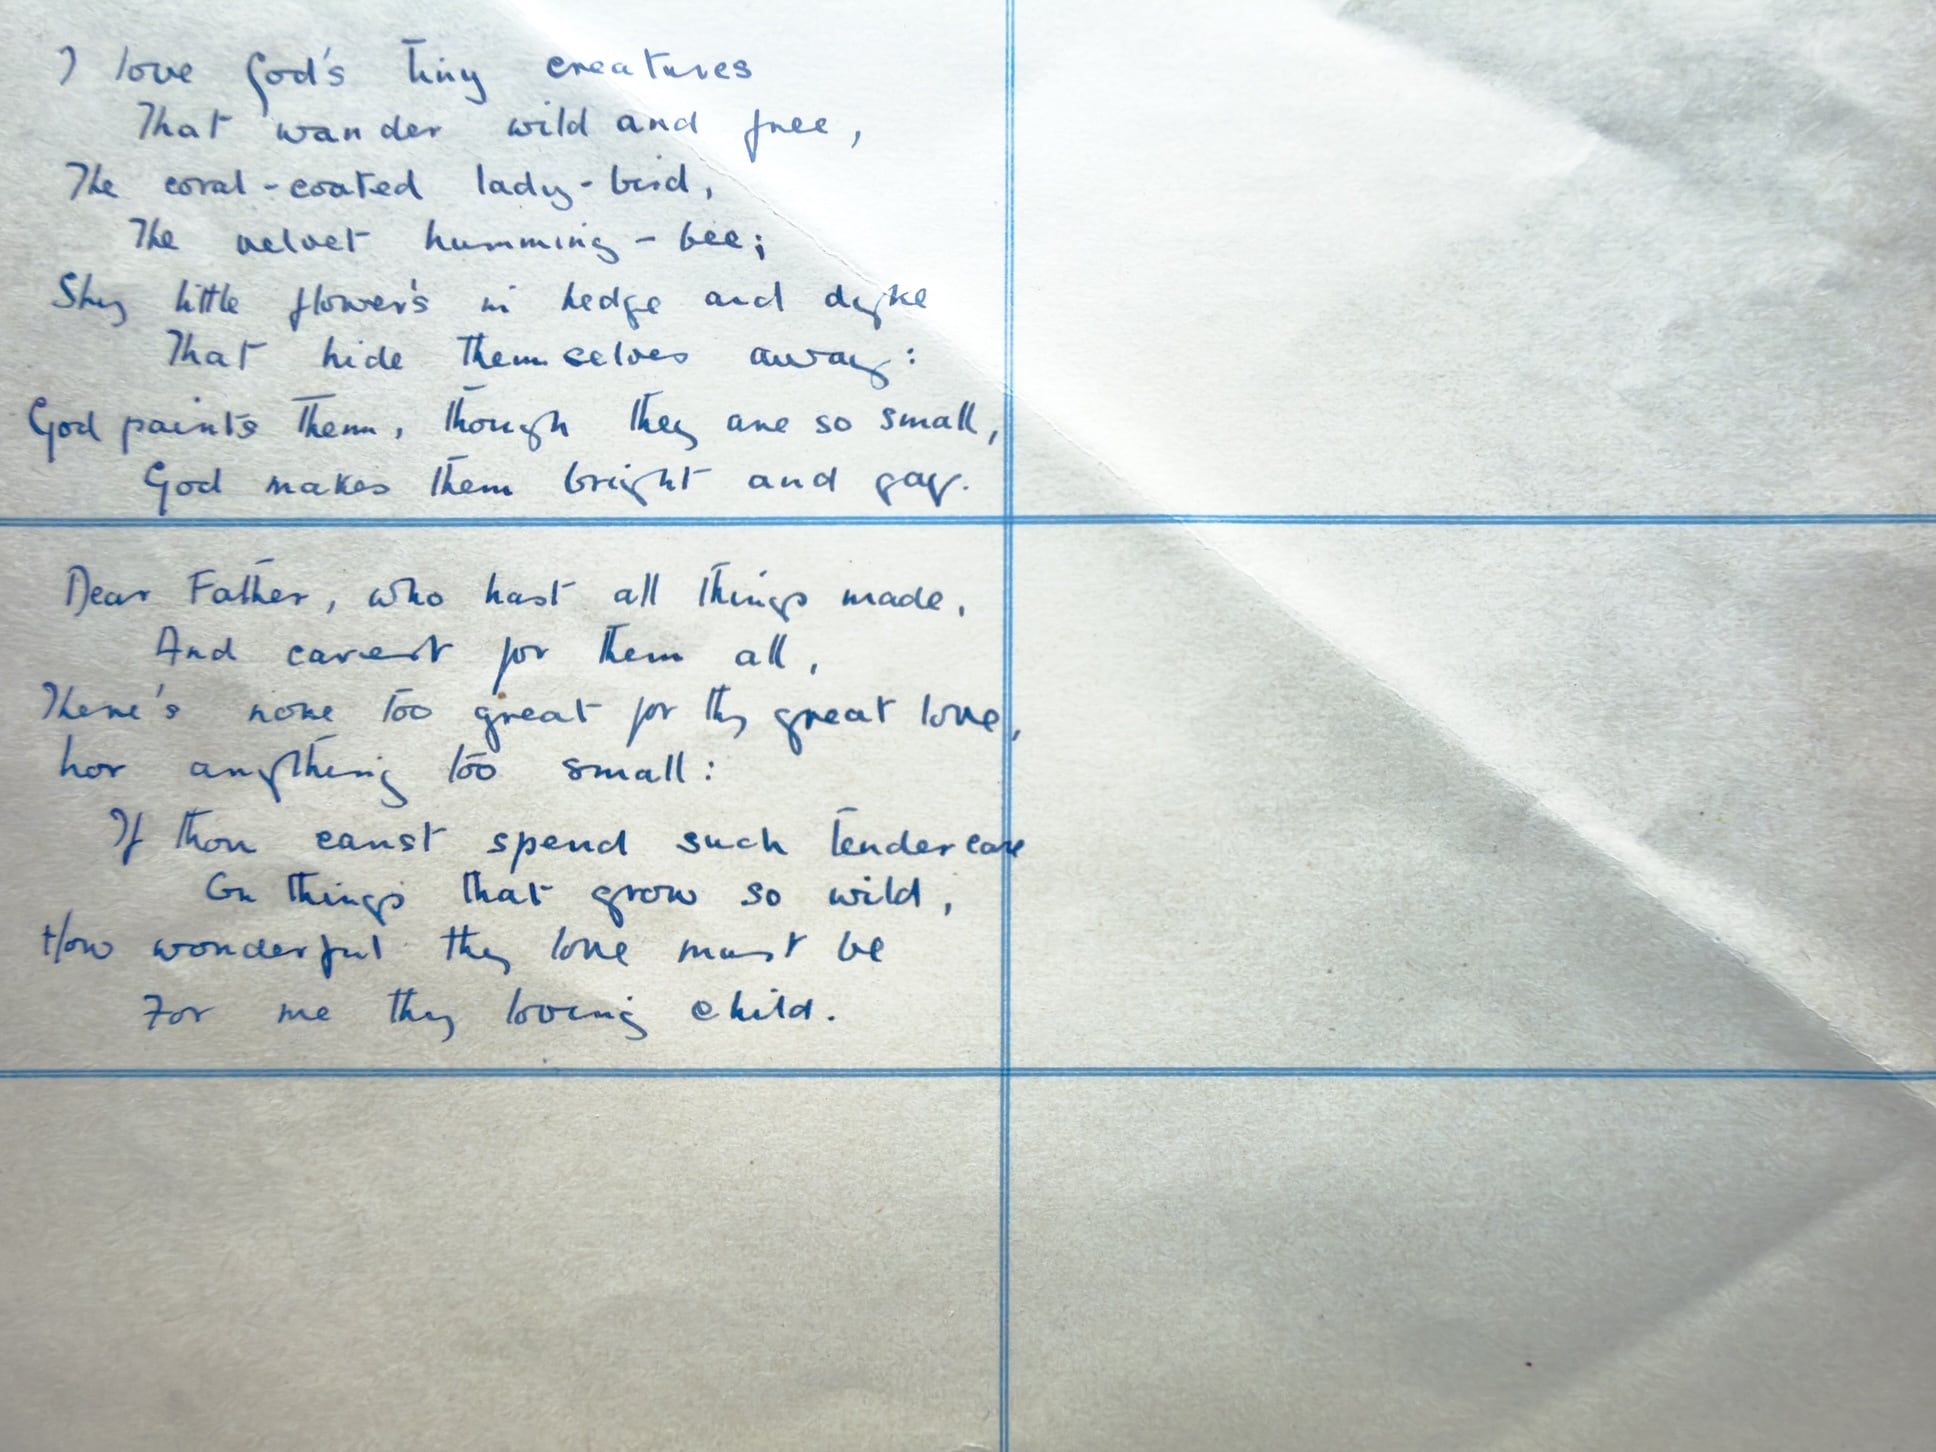 I love God's tiny creatures
That wander wild and free,
The coral-coated lady-bird,
The velvet humming-bee;
Shy little flower's in hedge and dyke
That hide themselves away:
God paints them, though they are so small,
God makes them bright and gay.
Dear Father, who hast all things made,
And carest for them all,
There's none too great for thy great love,
Nor anything too small:
If thou canst spend such tender care
On things that grow so wild,
How wonderful thy love must be
For me thy loving child.